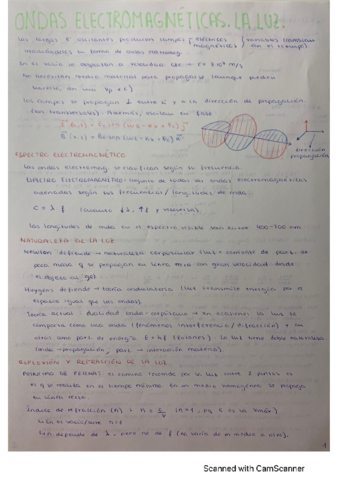 ONDAS ELECTROMAGNÉTICAS. LA LUZ.
Las cargas E oscilantes producen campos eléctricos magnéticos variables (cambian con el tiempo)
en forma de ondas electromag.
En el vacío se desplazan a velocidad
No necesitan medio material para propagarse (aunque pueden
hacerlo,
Los campos se propagan ⊥ entre sí y a la dirección de propagación.
(son transversales). Además, oscilan en fase
dirección
propagación
ESPECTRO ELECTROMAGNÉTICO
Las ondas electromag. se clasifican según su frecuencia.
ESPECTRO ELECTROMAGNÉTICO: conjunto de todas las ondas electromagnéticas
según sus frecuencias/longitudes de onda.
C = λ f
Las longitudes de onda en el espectro visible van entre 400-700 nm
NATURALEZA DE LA LUZ
Newton defiende → naturaleza corpuscular (luz = corriente de part. de
poca masa q se propagan en línea recta con gran velocidad desde
el objeto
Huygens defiende → teoría ondulatoria (luz transmite energía por el
espacio igual que las ondas).
Teoría actual: dualidad onda-corpúsculo → en ocasiones la luz se
comporta como una onda (fenómenos interferencia/difracción) y en
otras como part. de energía E = h f (fotones). La luz tiene doble naturaleza
(onda → propagación, part. → interacción materia).
REFLEXIÓN Y REFRACCIÓN DE LA LUZ
PRINCIPIO DE FERMAT: el camino recorrido por la luz entre 2 puntos es
el q se realiza en el tiempo mínimo. En un medio homogéneo se propaga
en línea recta.
Índice de refracción (n) → n = c/v
↳ En el vacío/aire n=1
↳ n depende de λ, pero no de f (no varía de un medio a otro).
1
Scanned with CamScanner